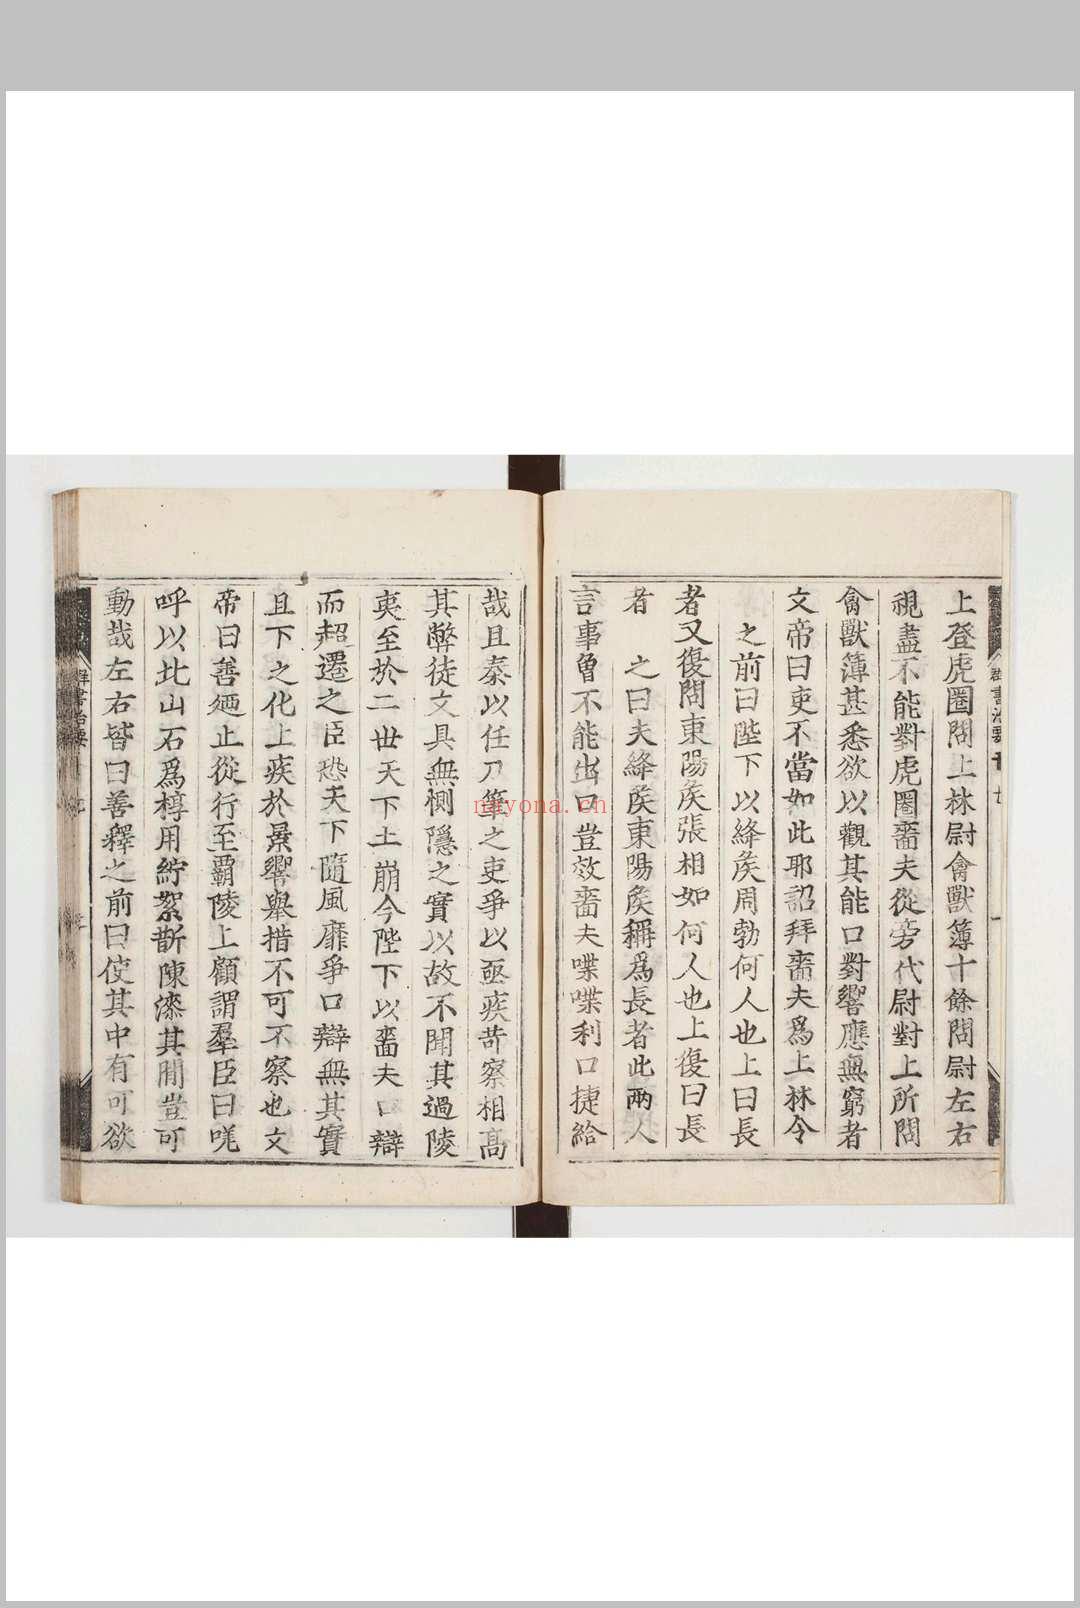 上登虎圈問上林尉禽獸簿十餘問尉左右
視盡不能對虎圈嗇夫從旁代尉對上所問
禽獸簿甚悉欲以觀其能口對響應無窮者
文帝曰吏不當如此耶詔拜嗇夫爲上林令
之前曰陛下以絳侯周勃何人也上曰長
者又復問東陽侯張相如何人也上復曰長
者 之曰夫絳侯東陽侯稱爲長者此兩人
言事曾不能出口豈效嗇夫喋喋利口捷給
哉且秦以任刀筆之吏爭以亟疾苛察相高
其弊徒文具無惻隱之實以故不聞其過陵
夷至於二世天下土崩今陛下以嗇夫口辯
而超遷之臣恐天下隨風靡爭口辯無其實
且下之化上疾於景響舉措不可不察也文
帝曰善廼止從行至霸陵上顧謂羣臣曰嗟
呼以此山石爲椁用紵絮斮陳漆其間豈可
動哉左右皆曰善釋之前曰使其中有可欲
群書治要
nayona.cn